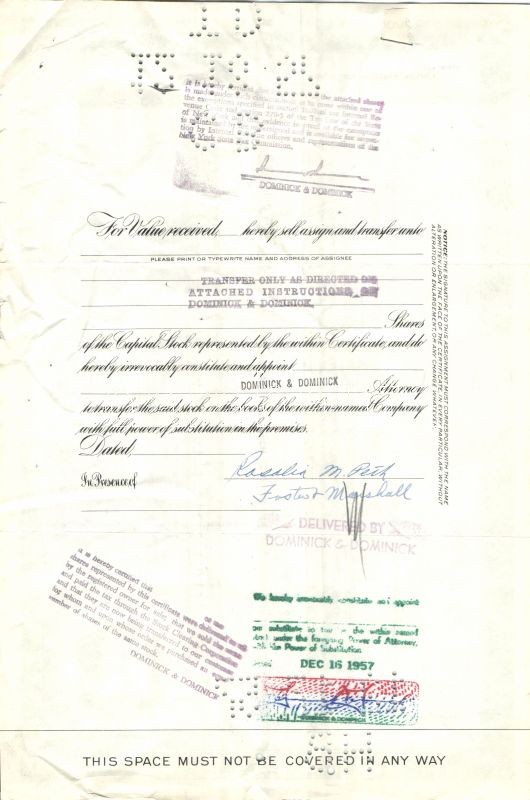 It is hereby
the attached shares
DOMINICK & DOMINICK
For Value received, hereby sell, assign and transfer unto
PLEASE PRINT OR TYPEWRITE NAME AND ADDRESS OF ASSIGNEE
TRANSFER ONLY AS DIRECTED ON
ATTACHED INSTRUCTIONS OF
DOMINICK & DOMINICK.
Shares
of the Capital Stock represented by the within Certificate, and do
hereby irrevocably constitute and appoint
DOMINICK & DOMINICK
Attorney
to transfer the said stock on the books of the within-named Company
with full power of substitution in the premises.
Dated,
In Presence of
Rosalia M.
Foster & Marshall
NOTICE: THE SIGNATURE TO THIS ASSIGNMENT MUST CORRESPOND WITH THE NAME
AS WRITTEN UPON THE FACE OF THE CERTIFICATE IN EVERY PARTICULAR, WITHOUT
ALTERATION OR ENLARGEMENT, OR ANY CHANGE WHATEVER.
DELIVERED BY
DOMINICK & DOMINICK
It is hereby certified that
shares represented by this certificate were delivered to
by the registered owner for sale; that we sold the same
and paid the tax through the Stock Clearing Corporation
and that they are now being transferred to our
by whom and upon whose order we purchased an
number of shares of the same stock.
DOMINICK & DOMINICK
We hereby irrevocably constitute and appoint
our substitute to transfer the within named
stock under the foregoing Power of Attorney,
with like Power of Substitution
DEC 16 1957
DOMINICK & DOMINICK
THIS SPACE MUST NOT BE COVERED IN ANY WAY